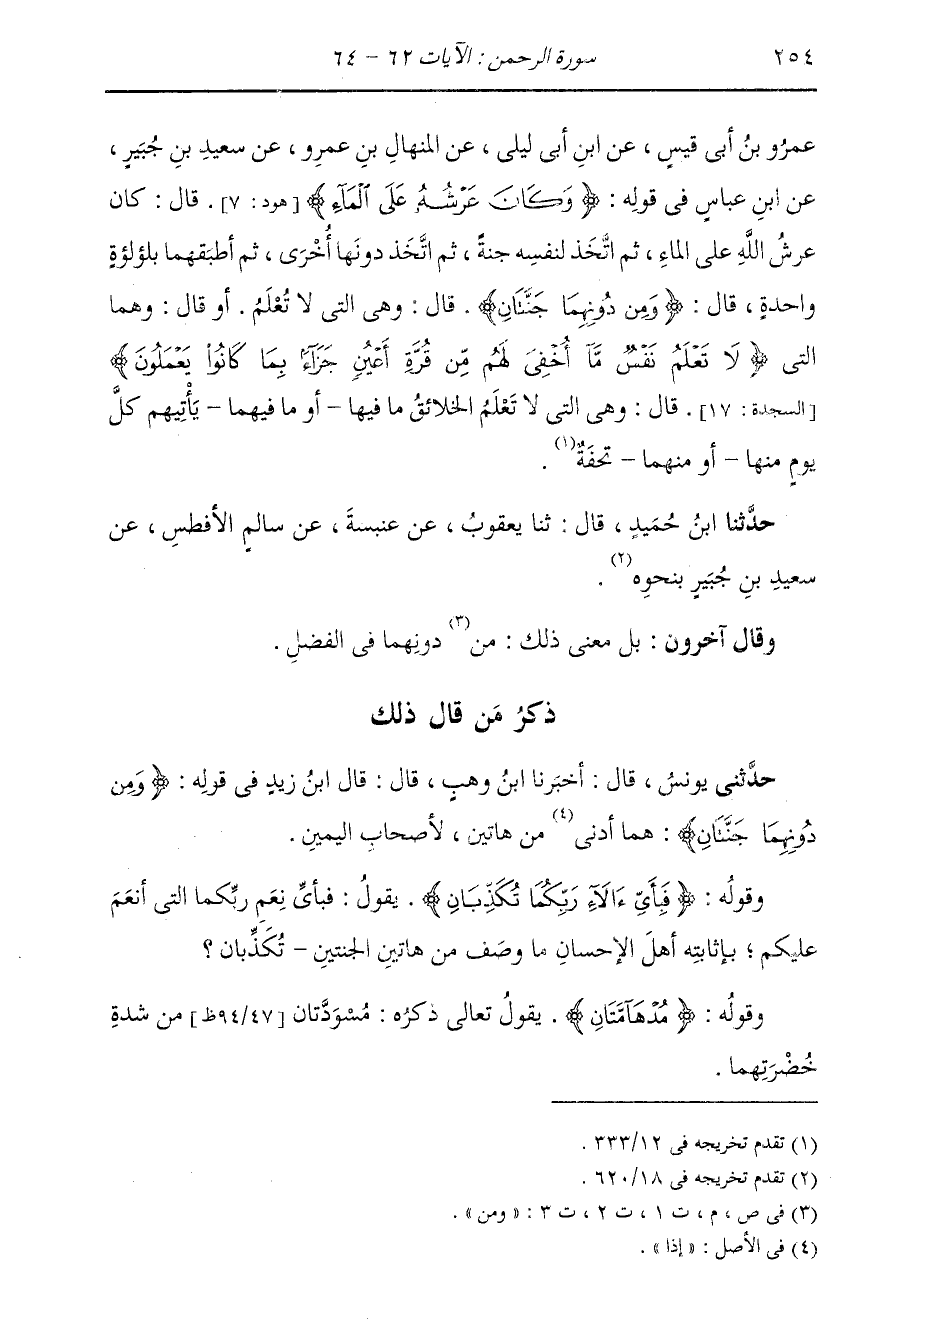 ٢٥٤ سورة الرحمن : الآيات ٦٢ - ٦٤
عمرُو بنُ أبى قيسٍ ، عن ابنِ أبى ليلى ، عن المنهالِ بنِ عمرٍو ، عن سعيدِ بنِ جُبَيرٍ ،
عن ابنِ عباسٍ فى قولِه : ﴿ وَكَانَ عَرْشُهُ عَلَى الْمَآءِ ﴾ [هود: ٧] . قال : كان
عرشُ اللَّهِ على الماءِ ، ثم اتَّخَذ لنفسِه جنةً ، ثم اتَّخَذ دونَها أُخْرَى ، ثم أطبَقهما بلؤلؤةٍ
واحدةٍ ، قال : ﴿ وَمِن دُونِهِمَا جَنَّتَانِ﴾ . قال : وهى التى لا تُعْلَمُ . أو قال : وهما
التى ﴿ لَا تَعْلَمُ نَفْسٌ مَّآ أُخْفِىَ لَهُم مِّن قُرَّةِ أَعْيُنٍ جَزَآءً بِمَا كَانُوا۟ يَعْمَلُونَ ﴾
[السجدة: ١٧] . قال : وهى التى لا تَعْلَمُ الخلائقُ ما فيها - أو ما فيهما - يَأْتِيهم كلَّ
يومٍ منها - أو منهما - تحفةٌ(١) .
حدَّثنا ابنُ حُمَيدٍ ، قال : ثنا يعقوبُ ، عن عنبسةَ ، عن سالمٍ الأفطسِ ، عن
سعيدِ بنِ جُبَيرٍ بنحوِه(٢) .
وقال آخرون : بل معنى ذلك : من(٣) دونِهما فى الفضلِ .
ذكرُ مَن قال ذلك
حدَّثنى يونسُ ، قال : أخبَرنا ابنُ وهبٍ ، قال : قال ابنُ زيدٍ فى قولِه : ﴿ وَمِن
دُونِهِمَا جَنَّتَانِ﴾ : هما أدنى(٤) من هاتين ، لأصحابِ اليمينِ .
وقولُه : ﴿ فَبِأَىِّ ءَالَآءِ رَبِّكُمَا تُكَذِّبَانِ ﴾ . يقولُ : فبأىِّ نِعَمِ ربِّكما التى أنعَمَ
عليكم ؛ بإثابتِه أهلَ الإحسانِ ما وصَف من هاتينِ الجنتينِ - تُكَذِّبان ؟
وقولُه : ﴿ مُدْهَآمَّتَانِ ﴾ . يقولُ تعالى ذكرُه : مُسْوَدَّتان [٩٤/٤٧ظ] من شدةِ
خُضْرَتِهما .
(١) تقدم تخريجه فى ٣٣٣/١٢ .
(٢) تقدم تخريجه فى ٦٢٠/١٨ .
(٣) فى ص ، م ، ت ١ ، ت ٢ ، ت ٣ : « ومن » .
(٤) فى الأصل : « إذا » .